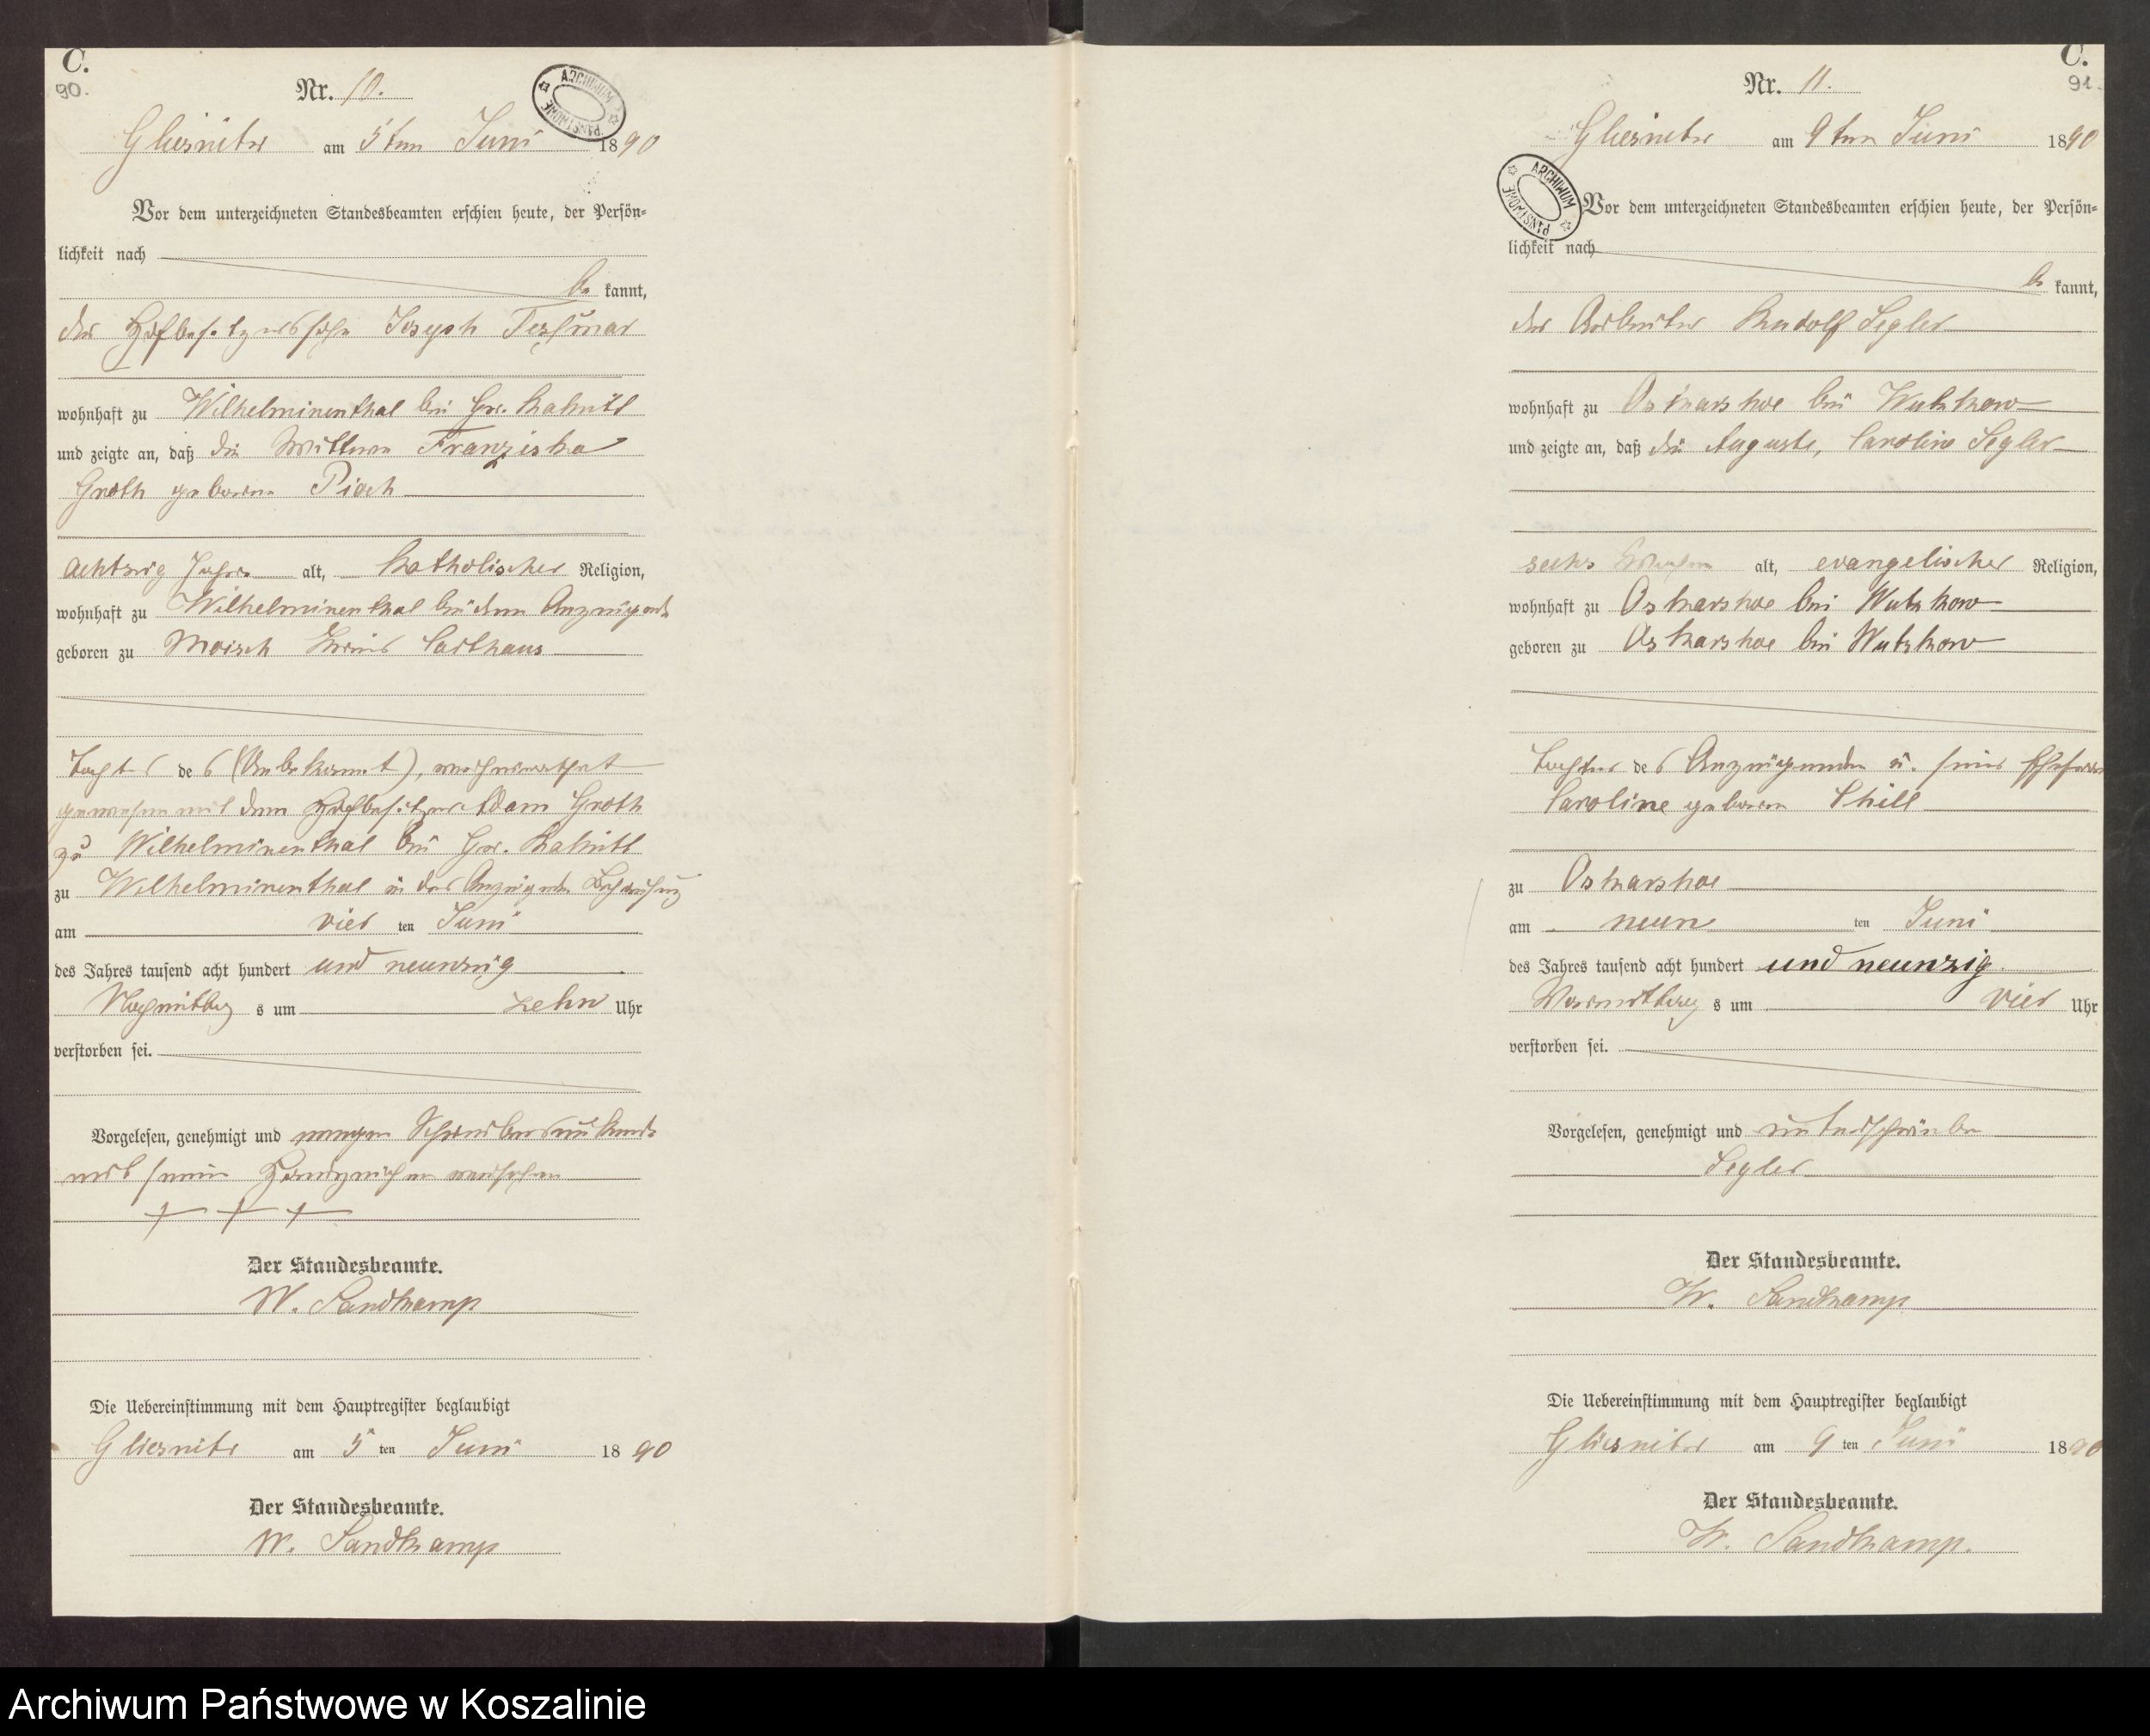 C.
90.
Nr. 10.
ARCHIWUM PAŃSTWOWE
Gliesnitz am 5ten Juni 1890
Vor dem unterzeichneten Standesbeamten erschien heute, der Persön=
lichkeit nach
be kannt,
der Hofbesitzerssohn Joseph
wohnhaft zu Wilhelminenthal bei Gr. Rakitt
und zeigte an, daß die Wittwe Franziska
Groth geborene Pioch
achtzig Jahre alt, katholischer Religion,
wohnhaft zu Wilhelminenthal bei dem Anzeigende
geboren zu Moisch Kreis Carthaus
Tochter des (Unbekannt), verheirathet
gewesen mit dem Hofbesitzer Adam Groth
zu Wilhelminenthal bei Gr. Rakitt
zu Wilhelminenthal in des Anzeigenden Behausung
am vier ten Juni
des Jahres tausend acht hundert und neunzig
Nachmittag s um zehn Uhr
verstorben sei.
Vorgelesen, genehmigt und wegen Schreibensunkunde
mit seinem Handzeichen versehen
+ + +
Der Standesbeamte.
W. Sandkamp
Die Uebereinstimmung mit dem Hauptregister beglaubigt
Gliesnitz am 5 ten Juni 18 90
Der Standesbeamte.
W. Sandkamp
C.
91.
Nr. 11.
Gliesnitz am 9ten Juni 1890
ARCHIWUM PAŃSTWOWE
Vor dem unterzeichneten Standesbeamten erschien heute, der Persön=
lichkeit nach
be kannt,
der Arbeiter Rudolf Segler
wohnhaft zu Oskarshoe bei Wutzkow
und zeigte an, daß die Auguste, Caroline Segler
sechs Wochen alt, evangelischer Religion,
wohnhaft zu Oskarshoe bei Wutzkow
geboren zu Oskarshoe bei Wutzkow
Tochter des Anzeigenden u. seiner Ehefrau
Caroline geborene Thill
zu Oskarshoe
am neun ten Juni
des Jahres tausend acht hundert und neunzig
Vormittag s um vier Uhr
verstorben sei.
Vorgelesen, genehmigt und unterschrieben
Segler
Der Standesbeamte.
W. Sandkamp
Die Uebereinstimmung mit dem Hauptregister beglaubigt
Gliesnitz am 9 ten Juni 1890
Der Standesbeamte.
W. Sandkamp.
Archiwum Państwowe w Koszalinie